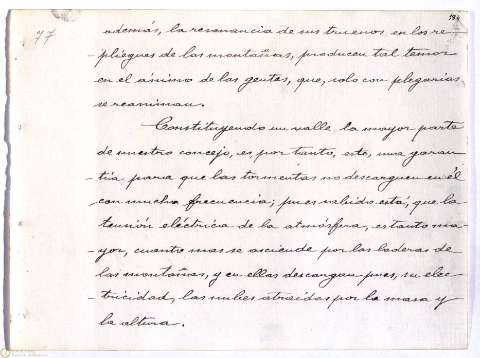 77
134
además, la resonancia de sus truenos en los re-
-pliegues de las montañas, producen tal temor
en el ánimo de las gentes, que, solo con plegarias
se reaniman.
Constituyendo un valle la mayor parte
de nuestro concejo, es, por tanto, esto, una garan-
-tía para que las tormentas no descarguen en él
con mucha frecuencia; pues sabido está, que la
tensión eléctrica de la atmósfera, es tanto ma-
-yor, cuanto mas se asciende por las laderas de
las montañas, y en ellas descargan pues, su elec-
-tricidad, las nubes atraidas por la masa y
la altura.